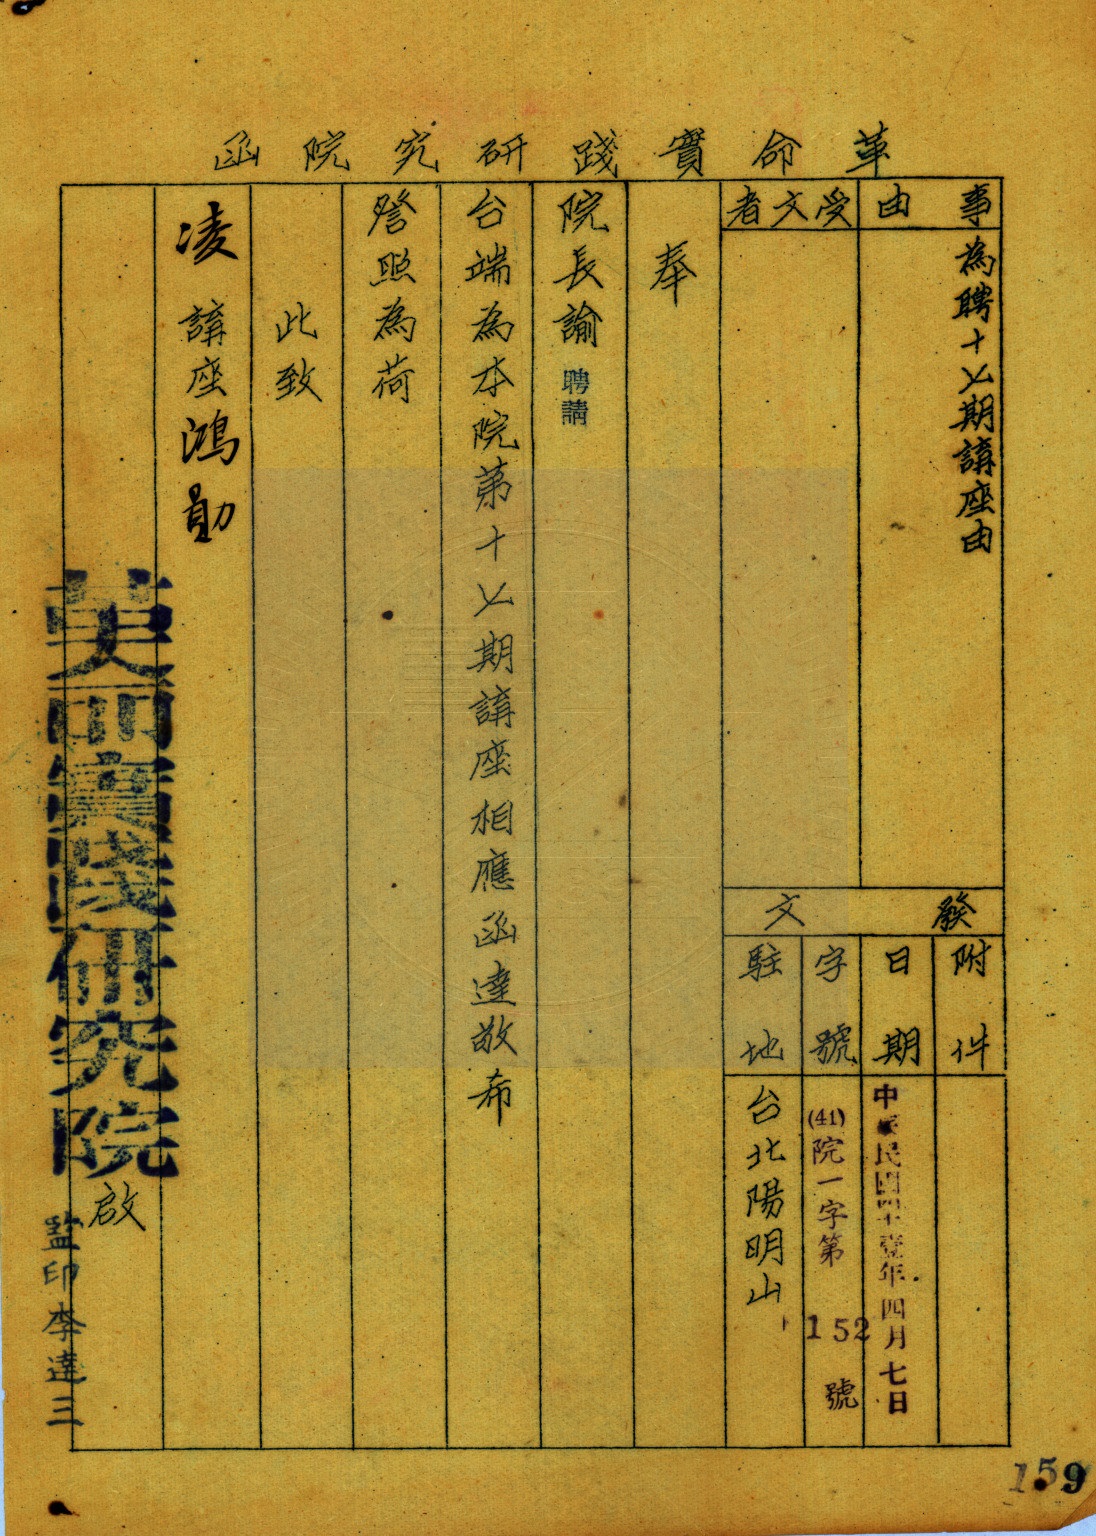 革命實踐研究院函
事由
為聘十七期講座由
受文者
發文
附件
日期
中華民國四十壹年四月七日
字號
(41)院一字第152號
駐地
台北陽明山
奉
院長諭聘請
台端為本院第十七期講座相應函達敬希
詧照為荷
此致
凌講座鴻勛
革命實踐研究院啟
監印李達三
159